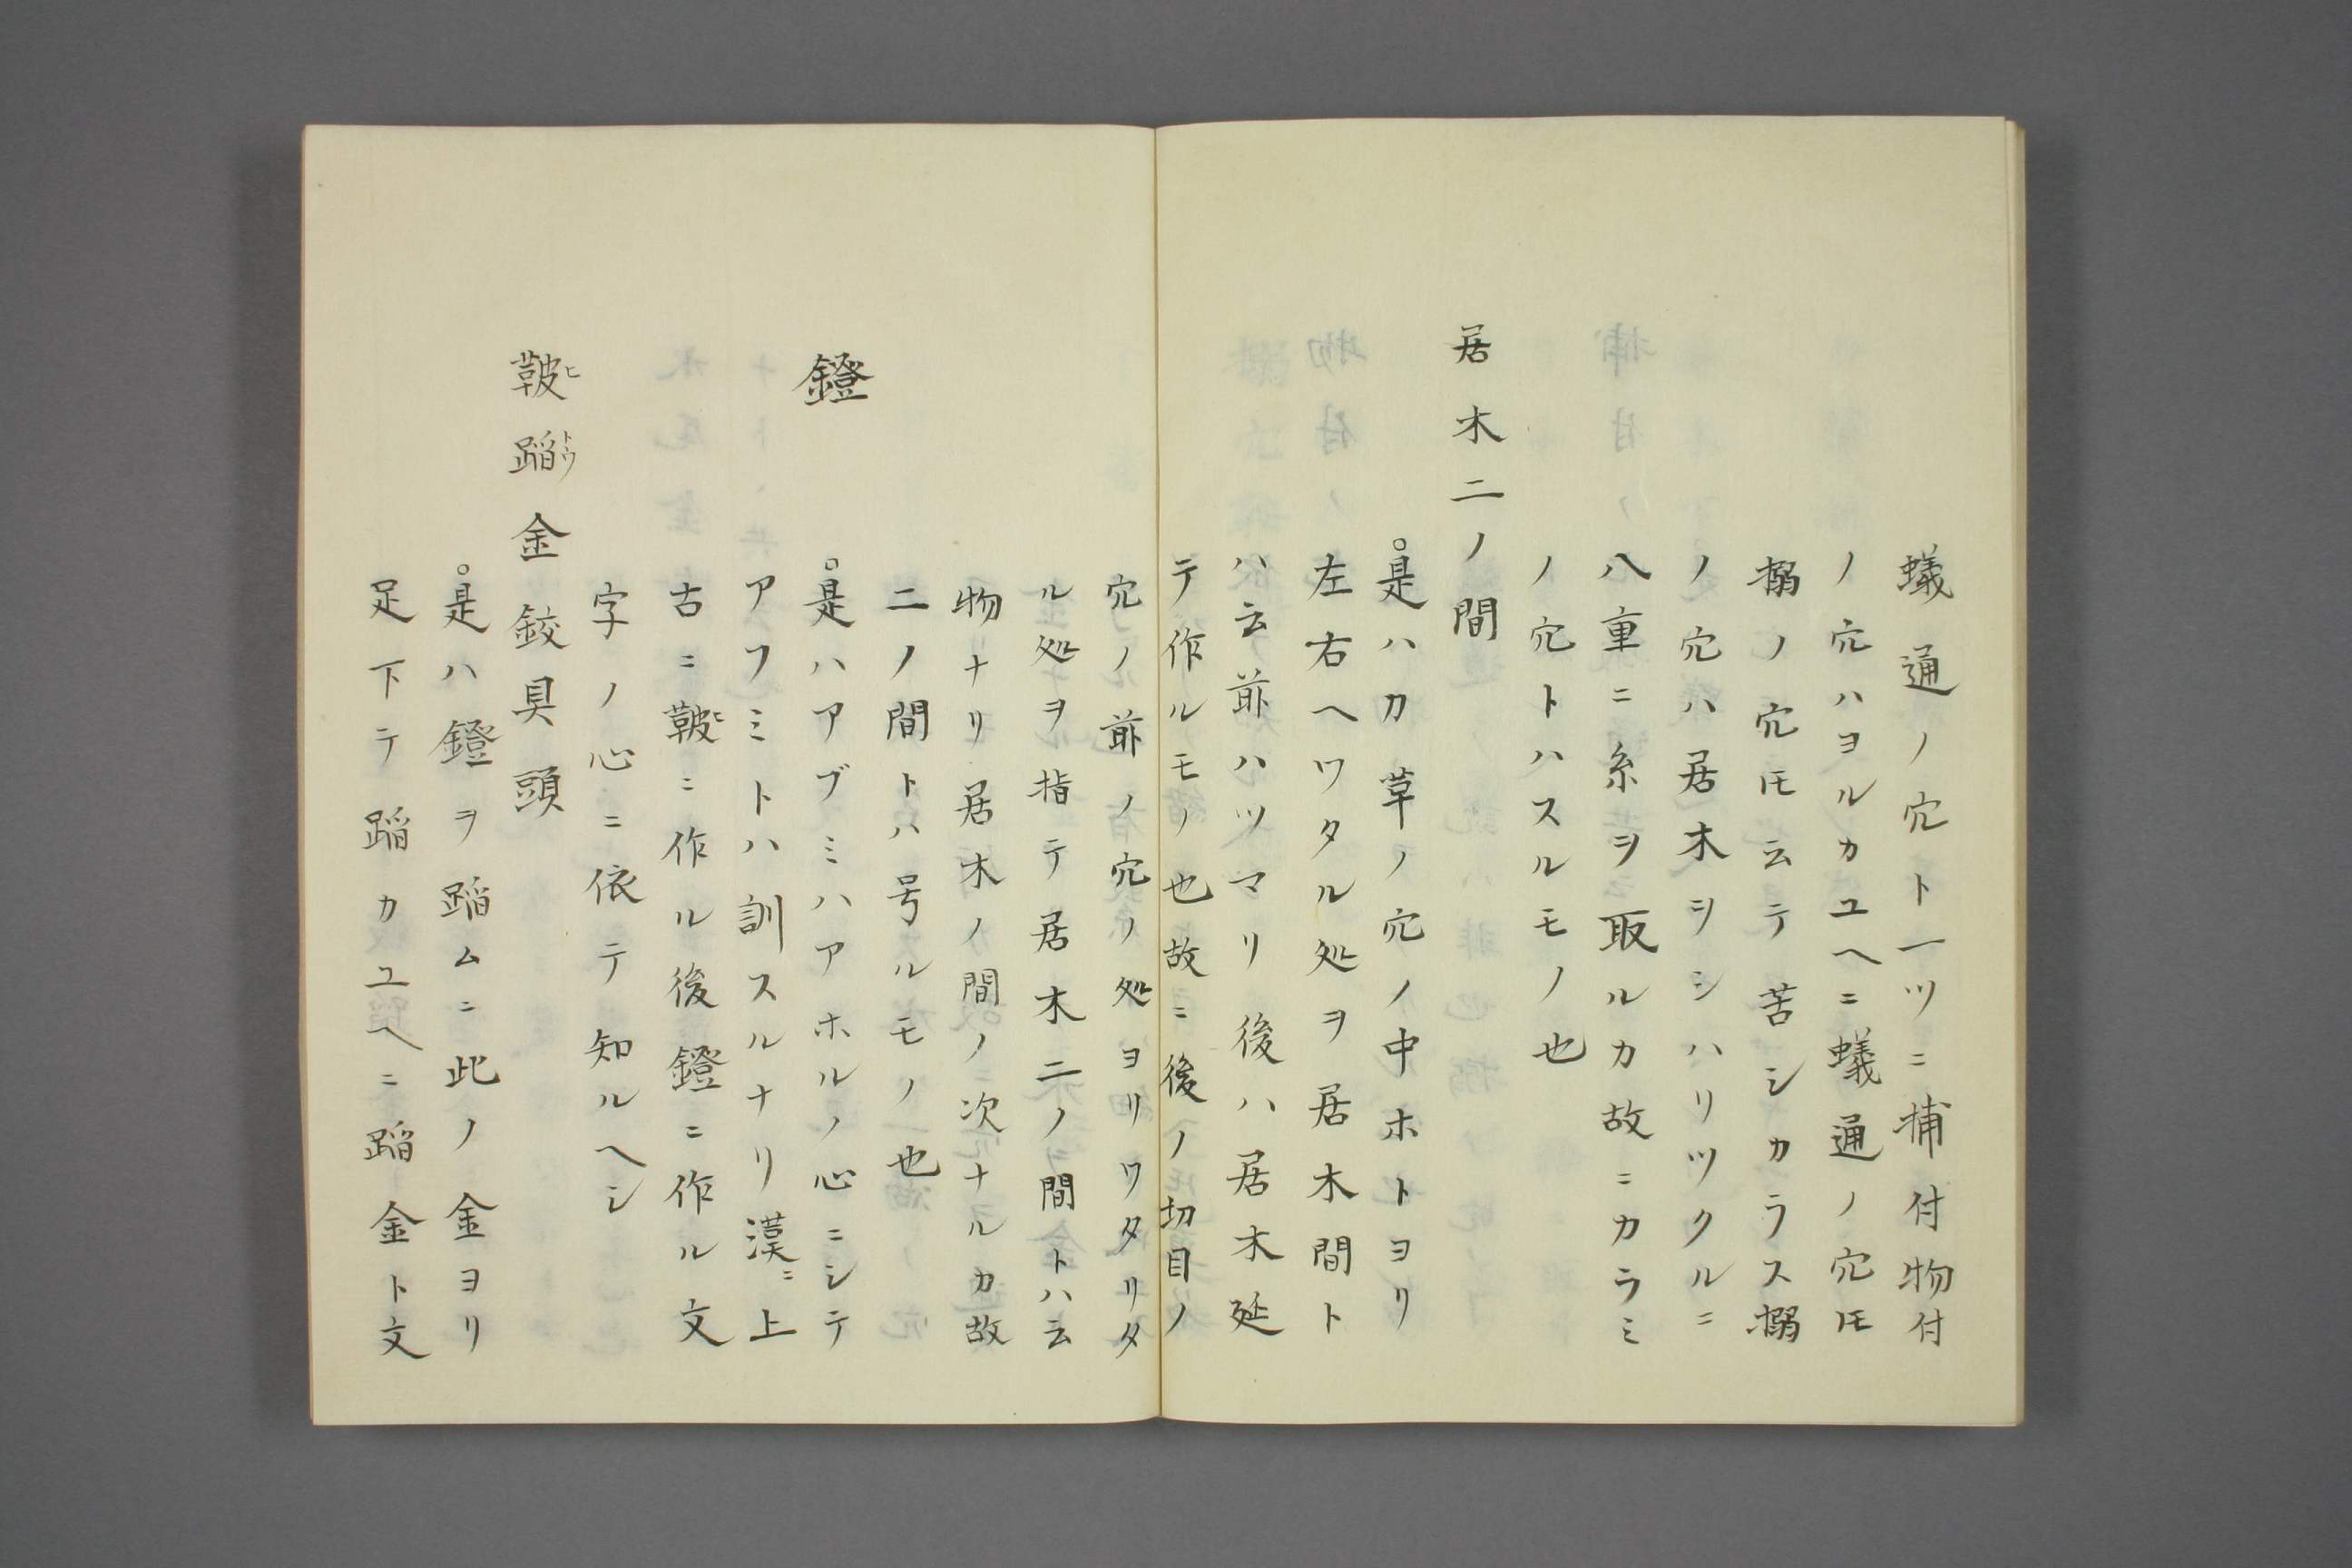 蟻通ノ穴ト一ツニ捕付物付
ノ穴ハヨルカユヘニ蟻通ノ穴𪜈
搦ノ穴𪜈云テ苦シカラス搦
ノ穴ハ居木ヲシハリツクルニ
八重ニ糸ヲ取ルカ故ニカラミ
ノ穴トハスルモノ也
居木二ノ間
○是ハ力革ノ穴ノ中ホトヨリ
左右ヘワタル処ヲ居木間ト
ハ云前ハツマリ後ハ居木延
テ作ルモノ也故ニ後ノ切目ノ
穴ノ前ノ穴ノ処ヨリワタリタ
ル処ヲ指テ居木二ノ間トハ云
物ナリ居木ノ間ノ次ナルカ故
二ノ間トハ号ルモノ也
鐙
○是ハアブミハアホルノ心ニシテ
アフミトハ訓スルナリ漢ニ上
古ニ鞁ヒニ作ル後鐙ニ作ル文
字ノ心ニ依テ知ルヘシ
鞁ヒ蹈トウ金鉸具頭
○是ハ鐙ヲ蹈ムニ此ノ金ヨリ
足下テ蹈カユヘニ蹈金ト文